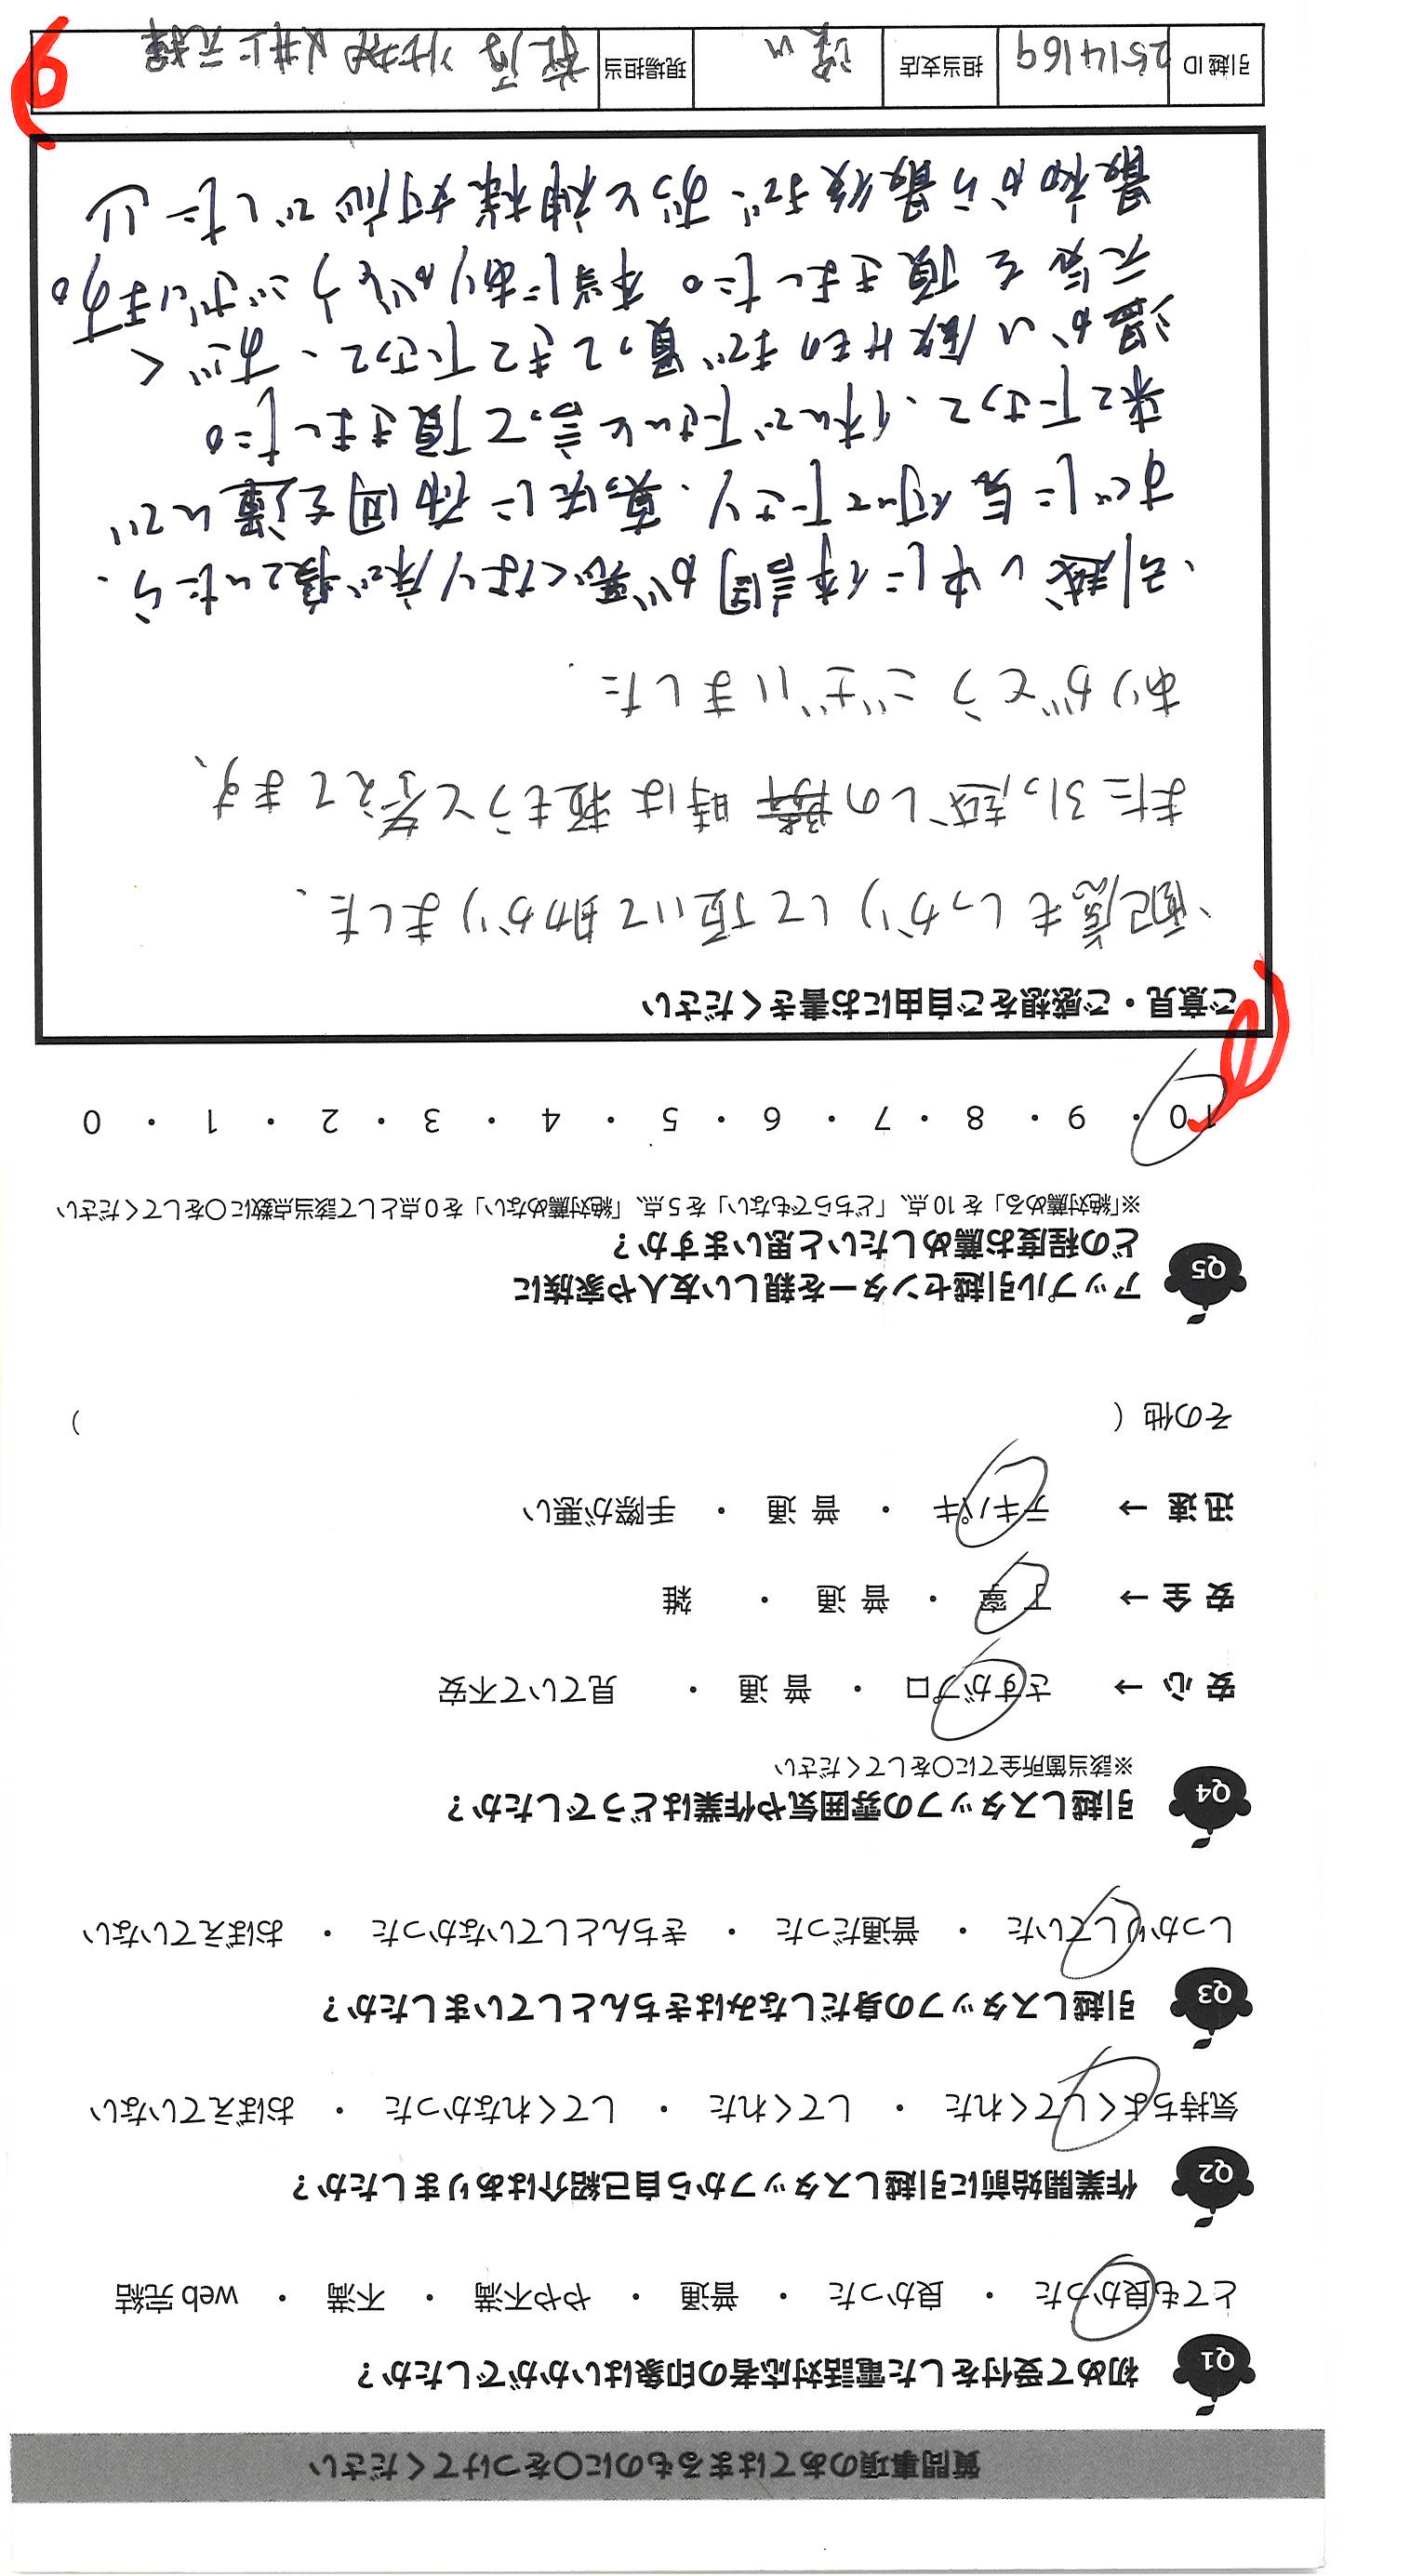 質問事項のあてはまるものに○をつけてください
Q1 初めて受付をした電話対応者の印象はいかがでしたか？
とても良かった ・ 良かった ・ 普通 ・ やや不満 ・ 不満 ・ web 完結
Q2 作業開始前に引越しスタッフから自己紹介はありましたか？
気持ちよくしてくれた ・ してくれた ・ してくれなかった ・ おぼえていない
Q3 引越しスタッフの身だしなみはきちんとしていましたか？
しっかりしていた ・ 普通だった ・ きちんとしていなかった ・ おぼえていない
Q4 引越しスタッフの雰囲気や作業はどうでしたか？
※該当箇所全てに○をしてください
安 心 → さすがプロ ・ 普 通 ・ 見ていて不安
安 全 → 丁 寧 ・ 普 通 ・ 雑
迅 速 → テキパキ ・ 普 通 ・ 手際が悪い
その他（ ）
Q5 アップル引越センターを親しい友人や家族に
どの程度お薦めしたいと思いますか？
※「絶対薦める」を 10 点、「どちらでもない」を 5 点、「絶対薦めない」を 0 点として該当点数に○をしてください
10 ・ 9 ・ 8 ・ 7 ・ 6 ・ 5 ・ 4 ・ 3 ・ 2 ・ 1 ・ 0
ご意見・ご感想をご自由にお書きください
、配慮もしっかりして頂いて助かりました、
また引っ越しの時は頼もうと考えてます、
ありがとうございました、
、引越し中に体調が悪くなり床で寝ていたら、
すぐに気付いて下さり、真っ先に布団を運んで
来て下さって、休んで下さいと言って頂きました。
温かい飲みものまで買ってきて下さって、すごく
元気を頂きました。本当にありがとうございます。
最初から最後まで、ずっと神様対応でした
引越 ID 2514169 担当支店 深川 現場担当